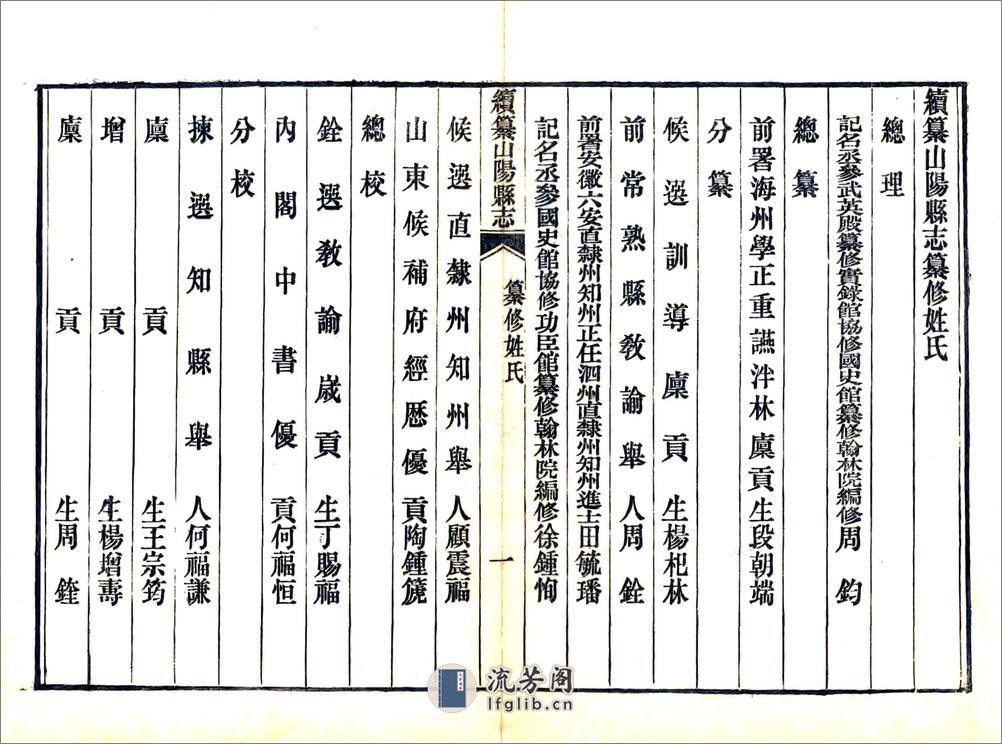 續纂山陽縣志纂修姓氏
總理
記名丞參武英殿纂修實錄館協修國史館纂修翰林院編修周鈞
總纂
前署海州學正重讌泮林廩貢生段朝端
分纂
候選訓導廩貢生楊杞林
前常熟縣敎諭舉人周銓
前署安徽六安直隸州知州正任泗州直隸州知州進士田毓璠
記名丞參國史館協修功臣館纂修翰林院編修徐鍾恂
續纂山陽縣志
纂修姓氏
一
候選直隸州知州舉人顧震福
山東候補府經歷優貢陶鍾箎
總校
銓選敎諭歲貢生丁賜福
內閣中書優貢何福恒
分校
揀選知縣舉人何福謙
廩貢生王宗筠
增貢生楊增壽
廩貢生周鍷
流芳阁
lfglib.cn